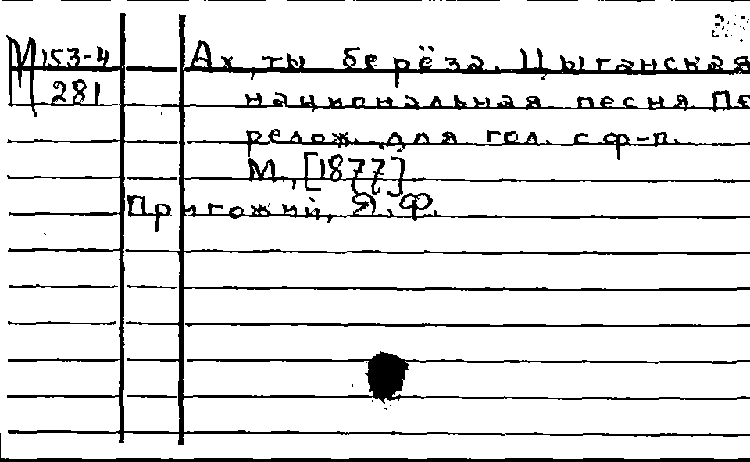 М 153-4
281
Ах, ты берёза. Цыганская
национальная песня. Пе
релож. для гол. с ф-п.
М., [1877]
Пригожий, Я. Ф.